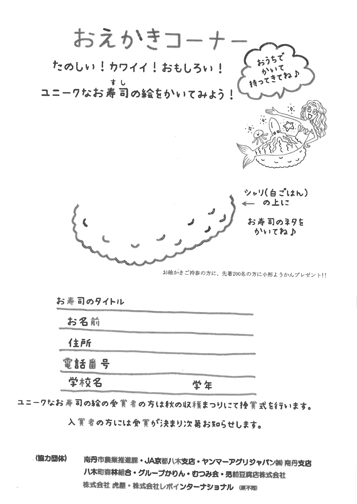 おえかきコーナー
たのしい！カワイイ！おもしろい！
すし
ユニークなお寿司の絵をかいてみよう！
おうちで
かいて
持ってきてね♪
シャリ(白ごはん)
← の上に
お寿司のネタを
かいてね♪
お絵かきご持参の方に、先着200名の方に小形ようかんプレゼント!!
お寿司のタイトル
お名前
住所
電話番号
学校名 学年
ユニークなお寿司の絵の受賞者の方は秋の収穫まつりにて授賞式を行います。
入賞者の方には受賞が決まり次第お知らせします。
（協力団体） 南丹市農業推進課・JA京都八木支店・ヤンマーアグリジャパン㈱ 南丹支店
八木町森林組合・グループかりん・むつみ会・
株式会社 虎屋・株式会社レボインターナショナル （順不同）